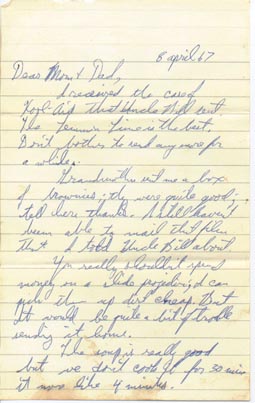 8 april 67
Dear Mom & Dad,
I received the case of
Kool-Aid that Uncle Bill sent.
The Lemon Lime is the best.
Don't bother to send any more for
a while.
Grandmother sent me a box
of brownies; they were quite good;
tell her thanks. I still haven't
been able to mail that film
that I told Uncle Bill about.
You really shouldn't spend
money on a slide projector, I can
pick them up dirt cheap. But
it would be quite a bit of trouble
sending it home.
The soup is really good
but we don't cook it for 30 mins
it more like 4 minutes.